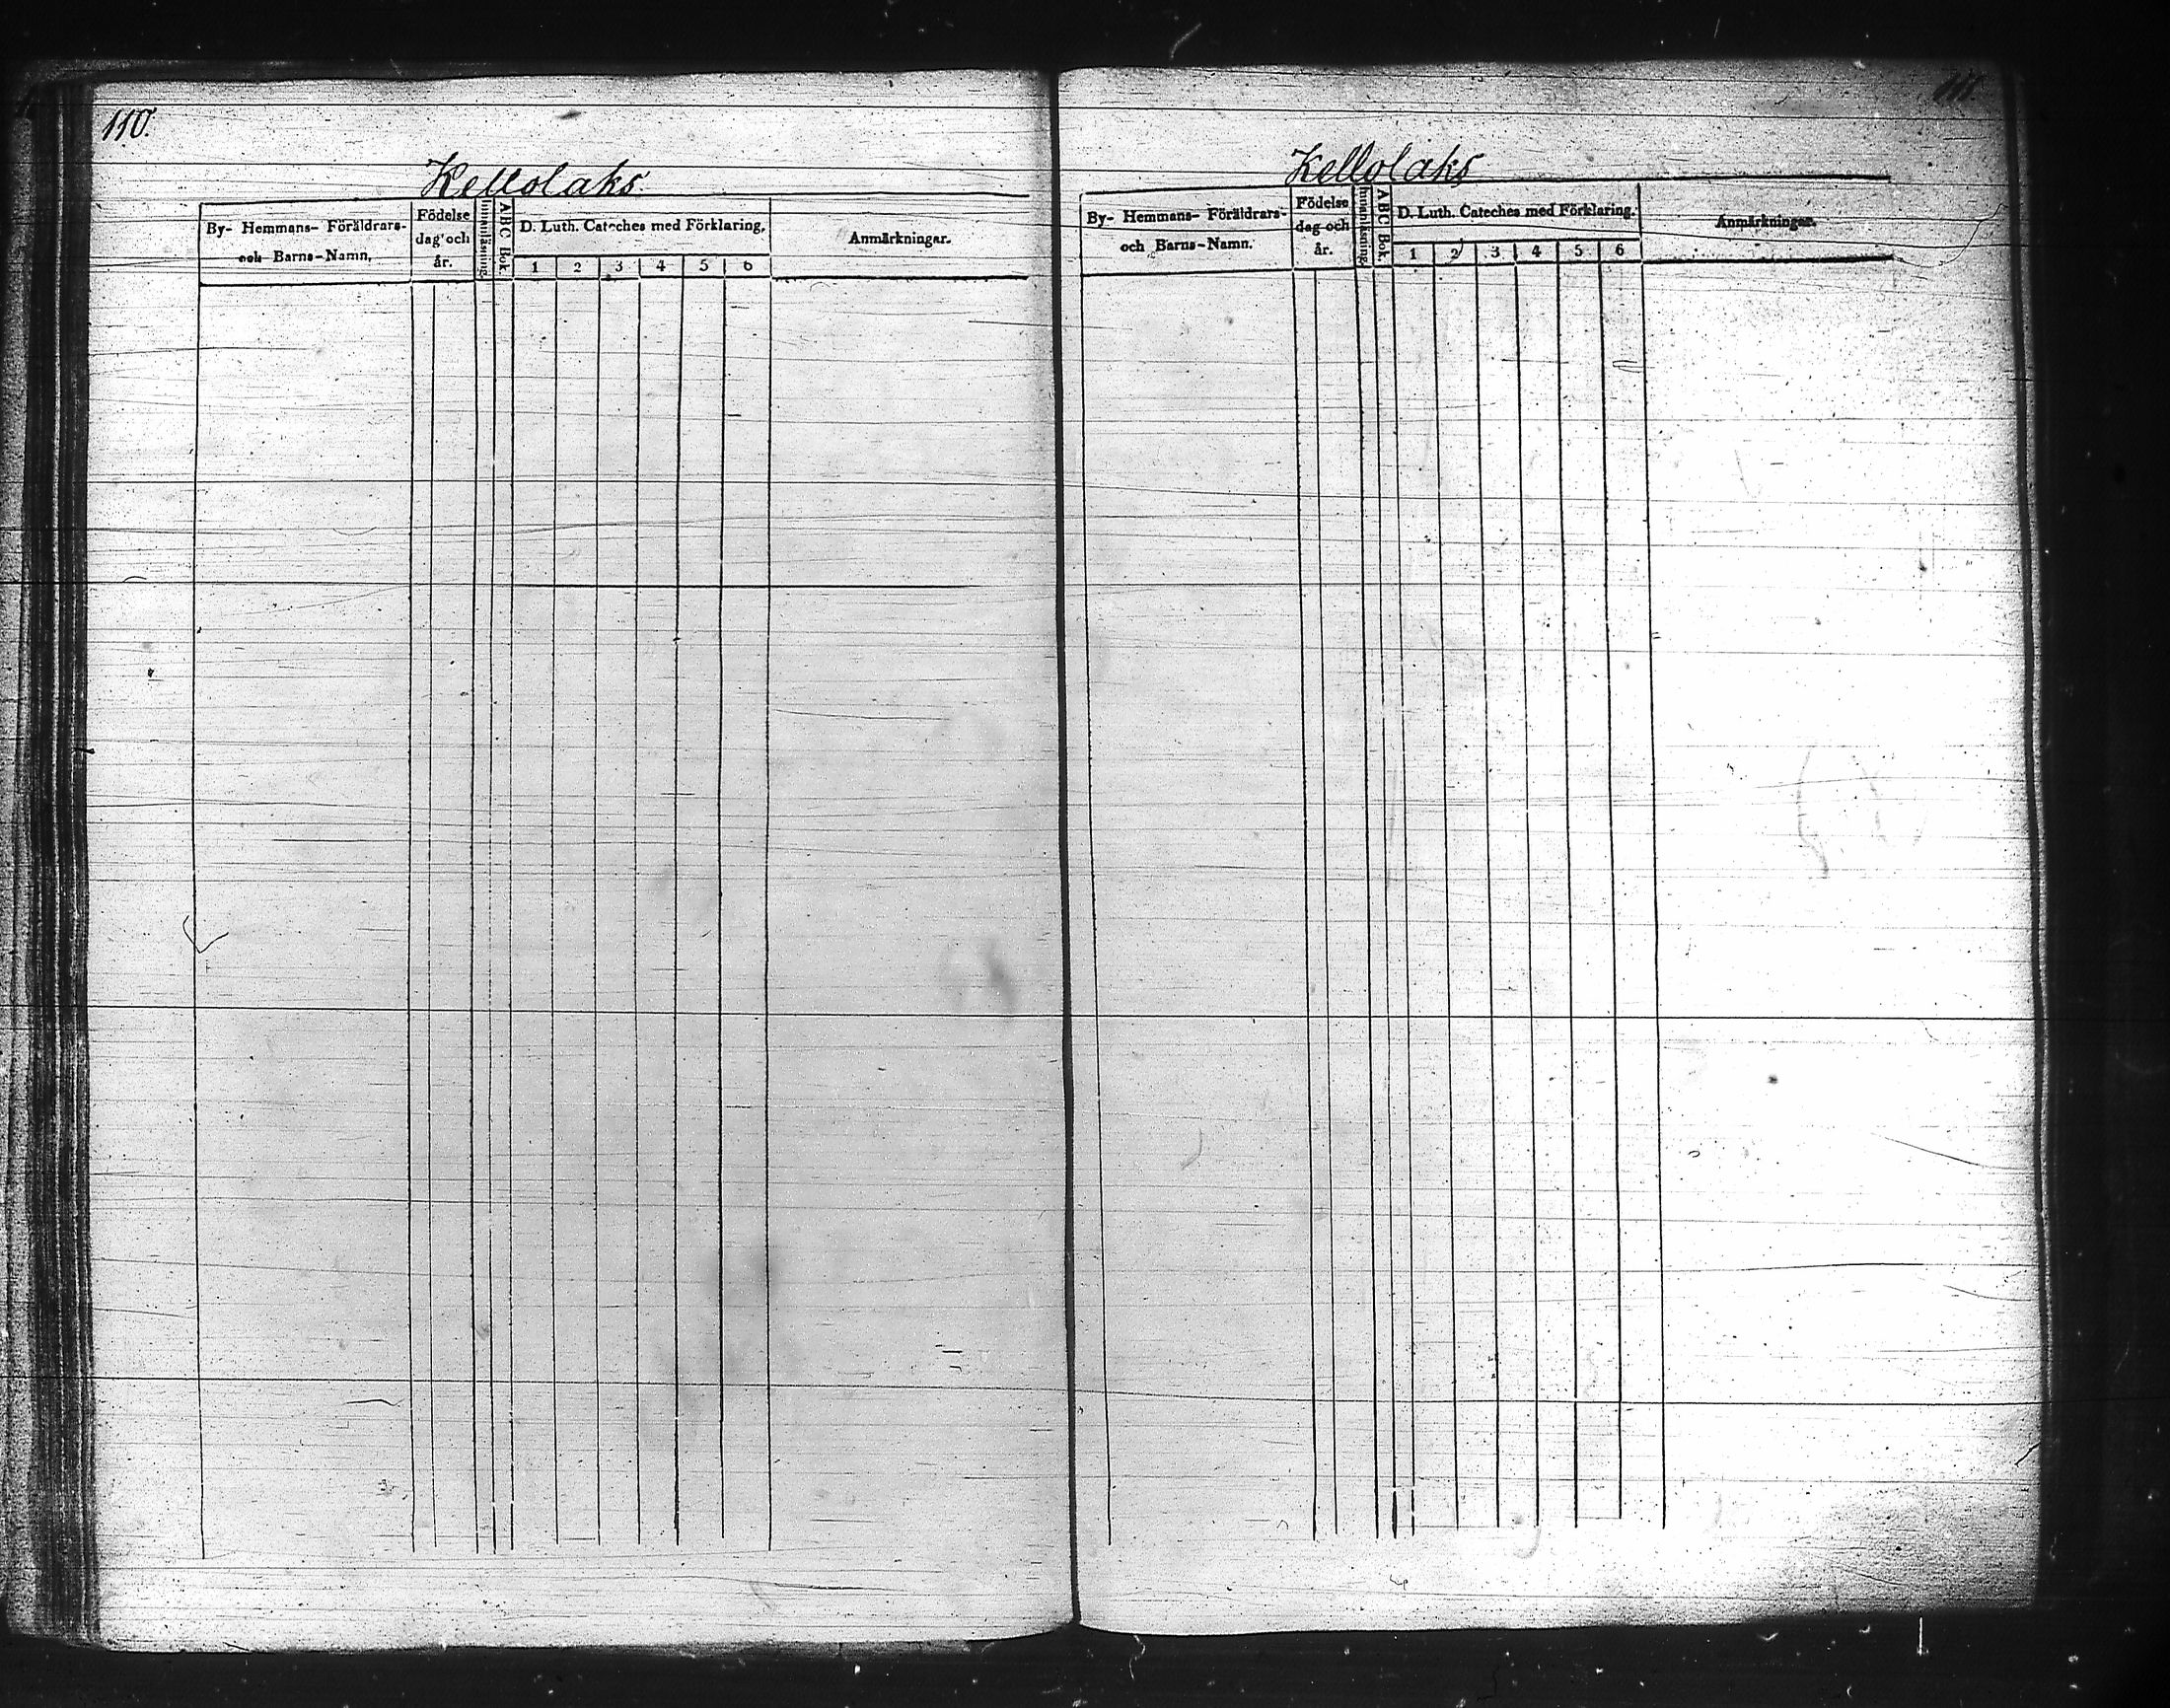 110.
Kellolaks
By- Hemmans- Föräldrars-
och Barns-Namn.
Födelse
dag och
år.
Innanläsning.
ABC Bok.
D. Luth. Cateches med Förklaring.
1 2 3 4 5 6
Anmärkningar.
111.
Kellolaks
By- Hemmans- Föräldrars-
och Barns-Namn.
Födelse
dag och
år.
Innanläsning.
ABC Bok.
D. Luth. Cateches med Förklaring.
1 2 3 4 5 6
Anmärkningar.